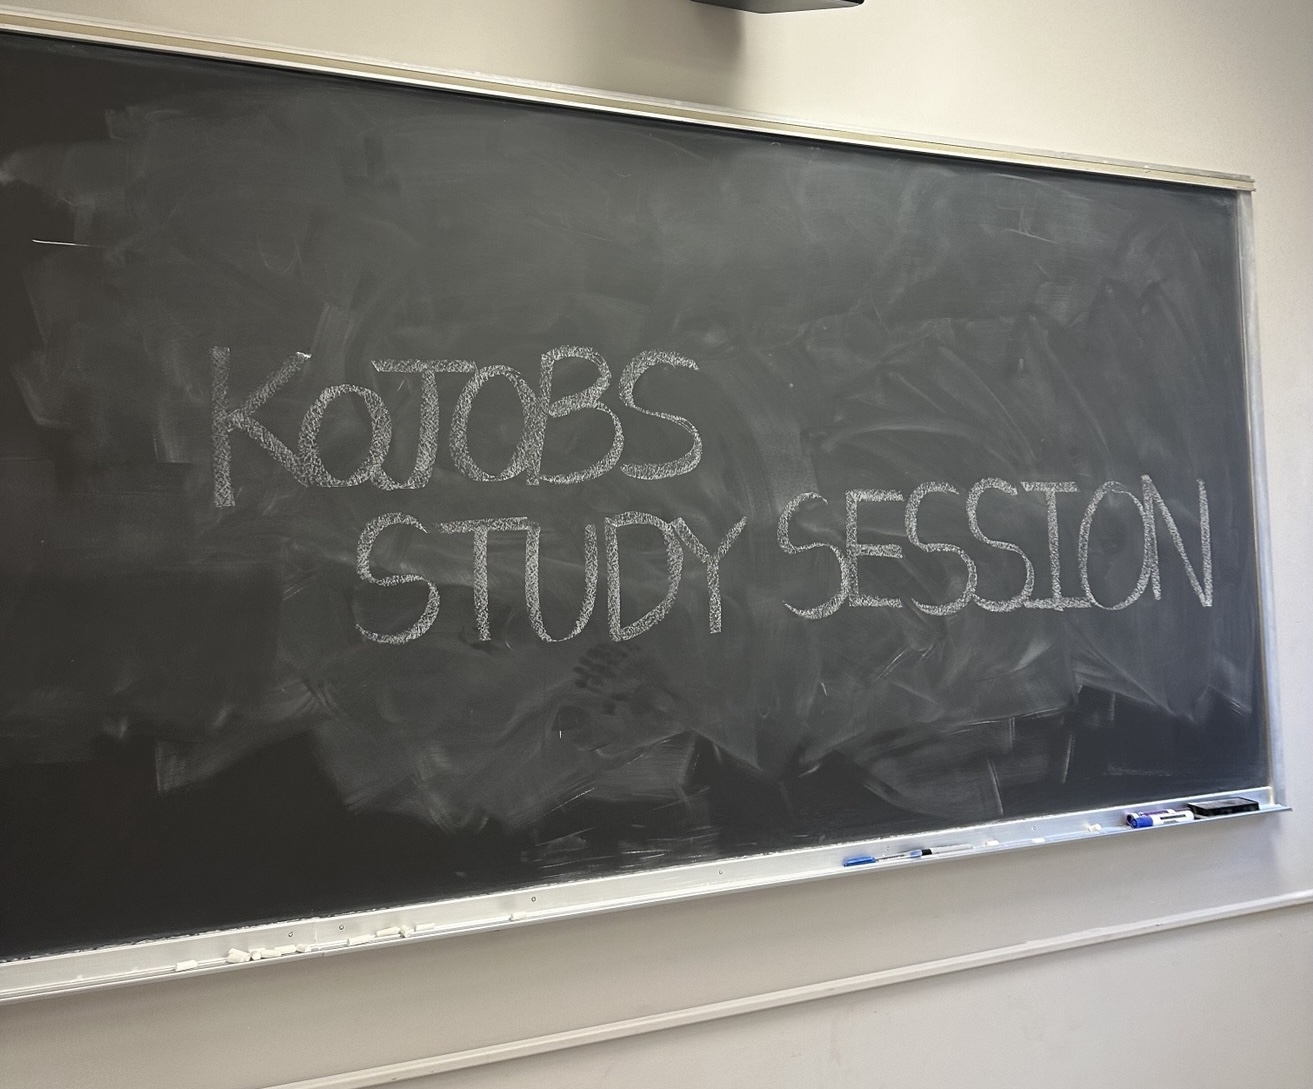 KOJOBS
STUDY SESSION